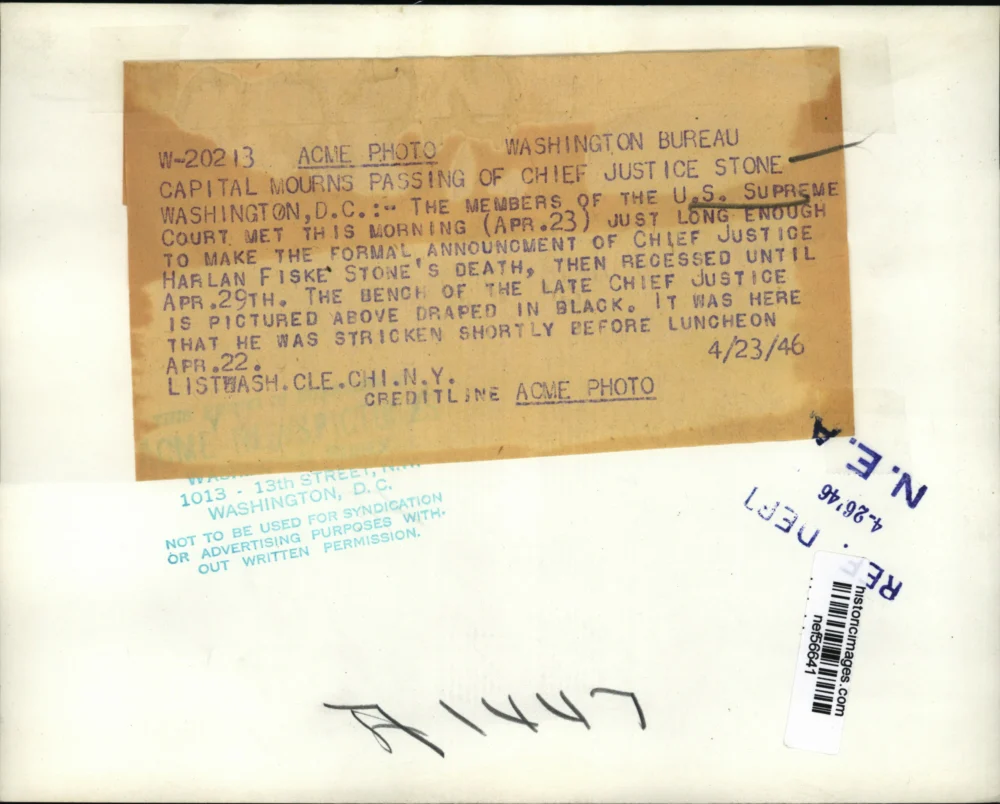 W-20213 ACME PHOTO WASHINGTON BUREAU
CAPITAL MOURNS PASSING OF CHIEF JUSTICE STONE
WASHINGTON,D.C.:- THE MEMBERS OF THE U.S. SUPREME
COURT MET THIS MORNING (APR.23) JUST LONG ENOUGH
TO MAKE THE FORMAL ANNOUNCMENT OF CHIEF JUSTICE
HARLAN FISKE STONE'S DEATH, THEN RECESSED UNTIL
APR.29TH. THE BENCH OF THE LATE CHIEF JUSTICE
IS PICTURED ABOVE DRAPED IN BLACK. IT WAS HERE
THAT HE WAS STRICKEN SHORTLY BEFORE LUNCHEON
APR.22. 4/23/46
LISTWASH.CLE.CHI.N.Y.
CREDITLINE ACME PHOTO
1013 - 13th STREET, N.W.
WASHINGTON, D. C.
NOT TO BE USED FOR SYNDICATION
OR ADVERTISING PURPOSES WITH-
OUT WRITTEN PERMISSION.
N.E.A
4-26'46
REF. DEPT
historicimages.com
nef56641
1447